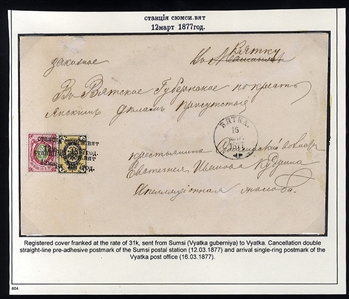 станція сюмси.вят
12март 1877год.
заказное
Въ Вятку
Въ Вятское Губернское по кресть
янскимъ дѣламъ присутствіе
ВЯТКА
крестьянина
Евгения Иванова Кудрина
Апелляціонная жалоба.
Registered cover franked at the rate of 31k, sent from Sumsi (Vyatka guberniya) to Vyatka. Cancellation double
straight-line pre-adhesive postmark of the Sumsi postal station (12.03.1877) and arrival single-ring postmark of the
Vyatka post office (16.03.1877).
604